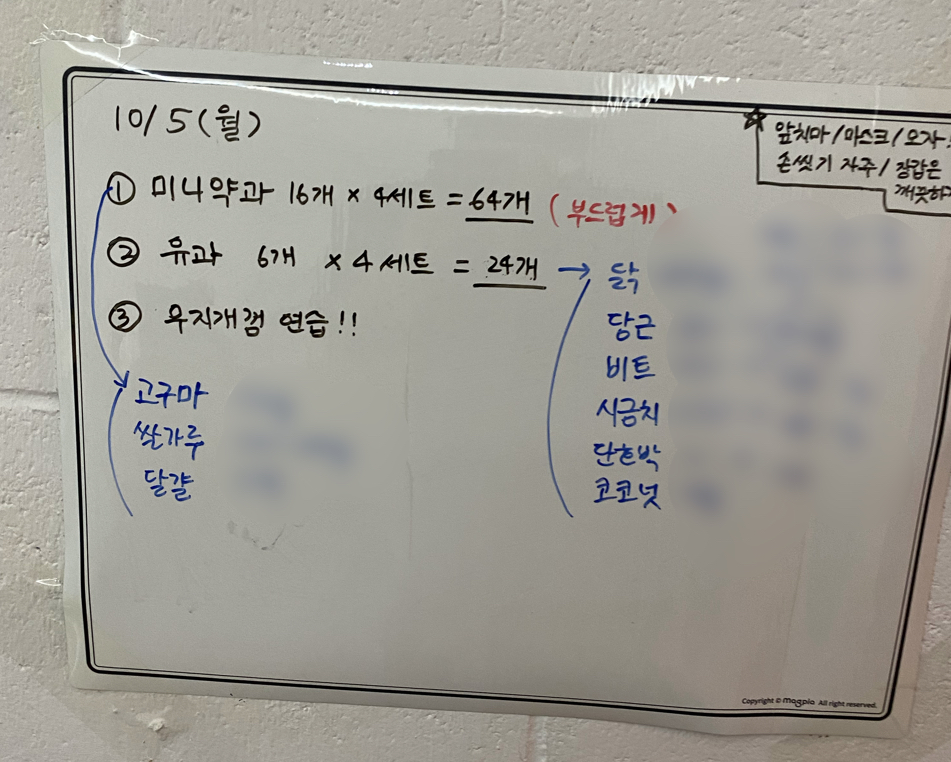 10/5(월)
☆ 앞치마/마스크/모자
손씻기 자주/장갑은
깨끗하
① 미니약과 16개 × 4세트 = 64개 (부드럽게)
② 유과 6개 × 4세트 = 24개 → 닭
당근
비트
시금치
단호박
코코넛
③ 무지개껌 연습!!
고구마
쌀가루
달걀
Copyright © magpia All right reserved.